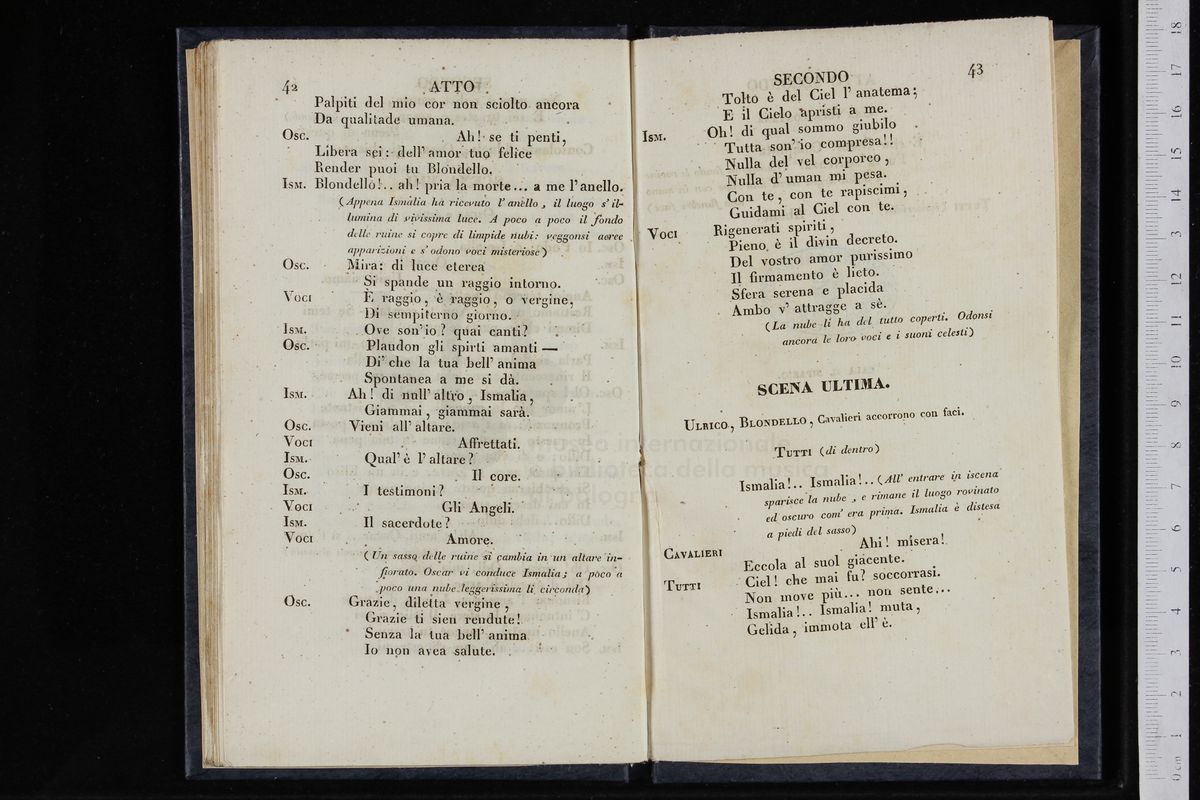 42
ATTO
Palpiti del mio cor non sciolto ancora
Da qualitade umana.
Osc. Ah! se ti penti,
Libera sei: dell' amor tuo felice
Render puoi tu Blondello.
Ism. Blondello!.. ah! pria la morte... a me l'anello.
(Appena Ismalia ha ricevuto l' anello, il luogo s' il-
lumina di vivissima luce. A poco a poco il fondo
delle ruine si copre di limpide nubi: veggonsi aeree
apparizioni e s' odono voci misteriose)
Osc. Mira: di luce eterea
Si spande un raggio intorno.
Voci È raggio, è raggio, o vergine,
Di sempiterno giorno.
Ism. Ove son' io? quai canti?
Osc. Plaudon gli spirti amanti —
Di' che la tua bell' anima
Spontanea a me si dà.
Ism. Ah! di null' altro, Ismalia,
Giammai, giammai sarà.
Osc. Vieni all' altare.
Voci Affrettati.
Ism. Qual' è l' altare?
Osc. Il core.
Ism. I testimoni?
Voci Gli Angeli.
Ism. Il sacerdote?
Voci Amore.
(Un sasso delle ruine si cambia in un altare in-
fiorato. Oscar vi conduce Ismalia; a poco a
poco una nube leggerissima li circonda)
Osc. Grazie, diletta vergine,
Grazie ti sien rendute!
Senza la tua bell' anima
Io non avea salute.
SECONDO
43
Tolto è del Ciel l' anatema;
E il Cielo apristi a me.
Ism. Oh! di qual sommo giubilo
Tutta son' io compresa!!
Nulla del vel corporeo,
Nulla d' uman mi pesa.
Con te, con te rapiscimi,
Guidami al Ciel con te.
Voci Rigenerati spiriti,
Pieno è il divin decreto.
Del vostro amor purissimo
Il firmamento è lieto.
Sfera serena e placida
Ambo v' attragge a sè.
(La nube li ha del tutto coperti. Odonsi
ancora le loro voci e i suoni celesti)
SCENA ULTIMA.
Ulrico, Blondello, Cavalieri accorrono con faci.
Tutti (di dentro)
Ismalia!.. Ismalia!.. (All' entrare in iscena
sparisce la nube, e rimane il luogo rovinato
ed oscuro com' era prima. Ismalia è distesa
a piedi del sasso)
Cavalieri Ahi! misera!
Eccola al suol giacente.
Tutti Ciel! che mai fu? soccorrasi.
Non move più... non sente...
Ismalia!.. Ismalia! muta,
Gelida, immota ell' è.
museo internazionale
biblioteca della musica
bologna
0 cm 1 2 3 4 5 6 7 8 9 10 11 12 13 14 15 16 17 18